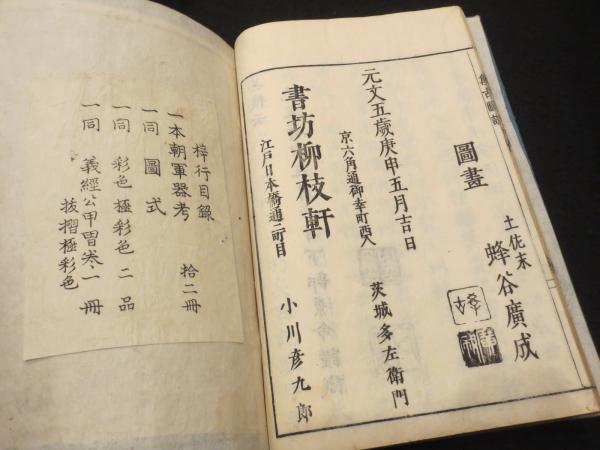 圖畫
土佐末 蜂谷廣成
元文五歲庚申五月吉日
京六角通御幸町西入 茨城多左衛門
書坊柳枝軒
江戸日本橋通二町目 小川彦九郎
梓行目錄
一本朝軍器考 拾二冊
一同 圖式
一同 彩色極彩色二品
一同 義經公甲冑巻、一冊
抜摺極彩色